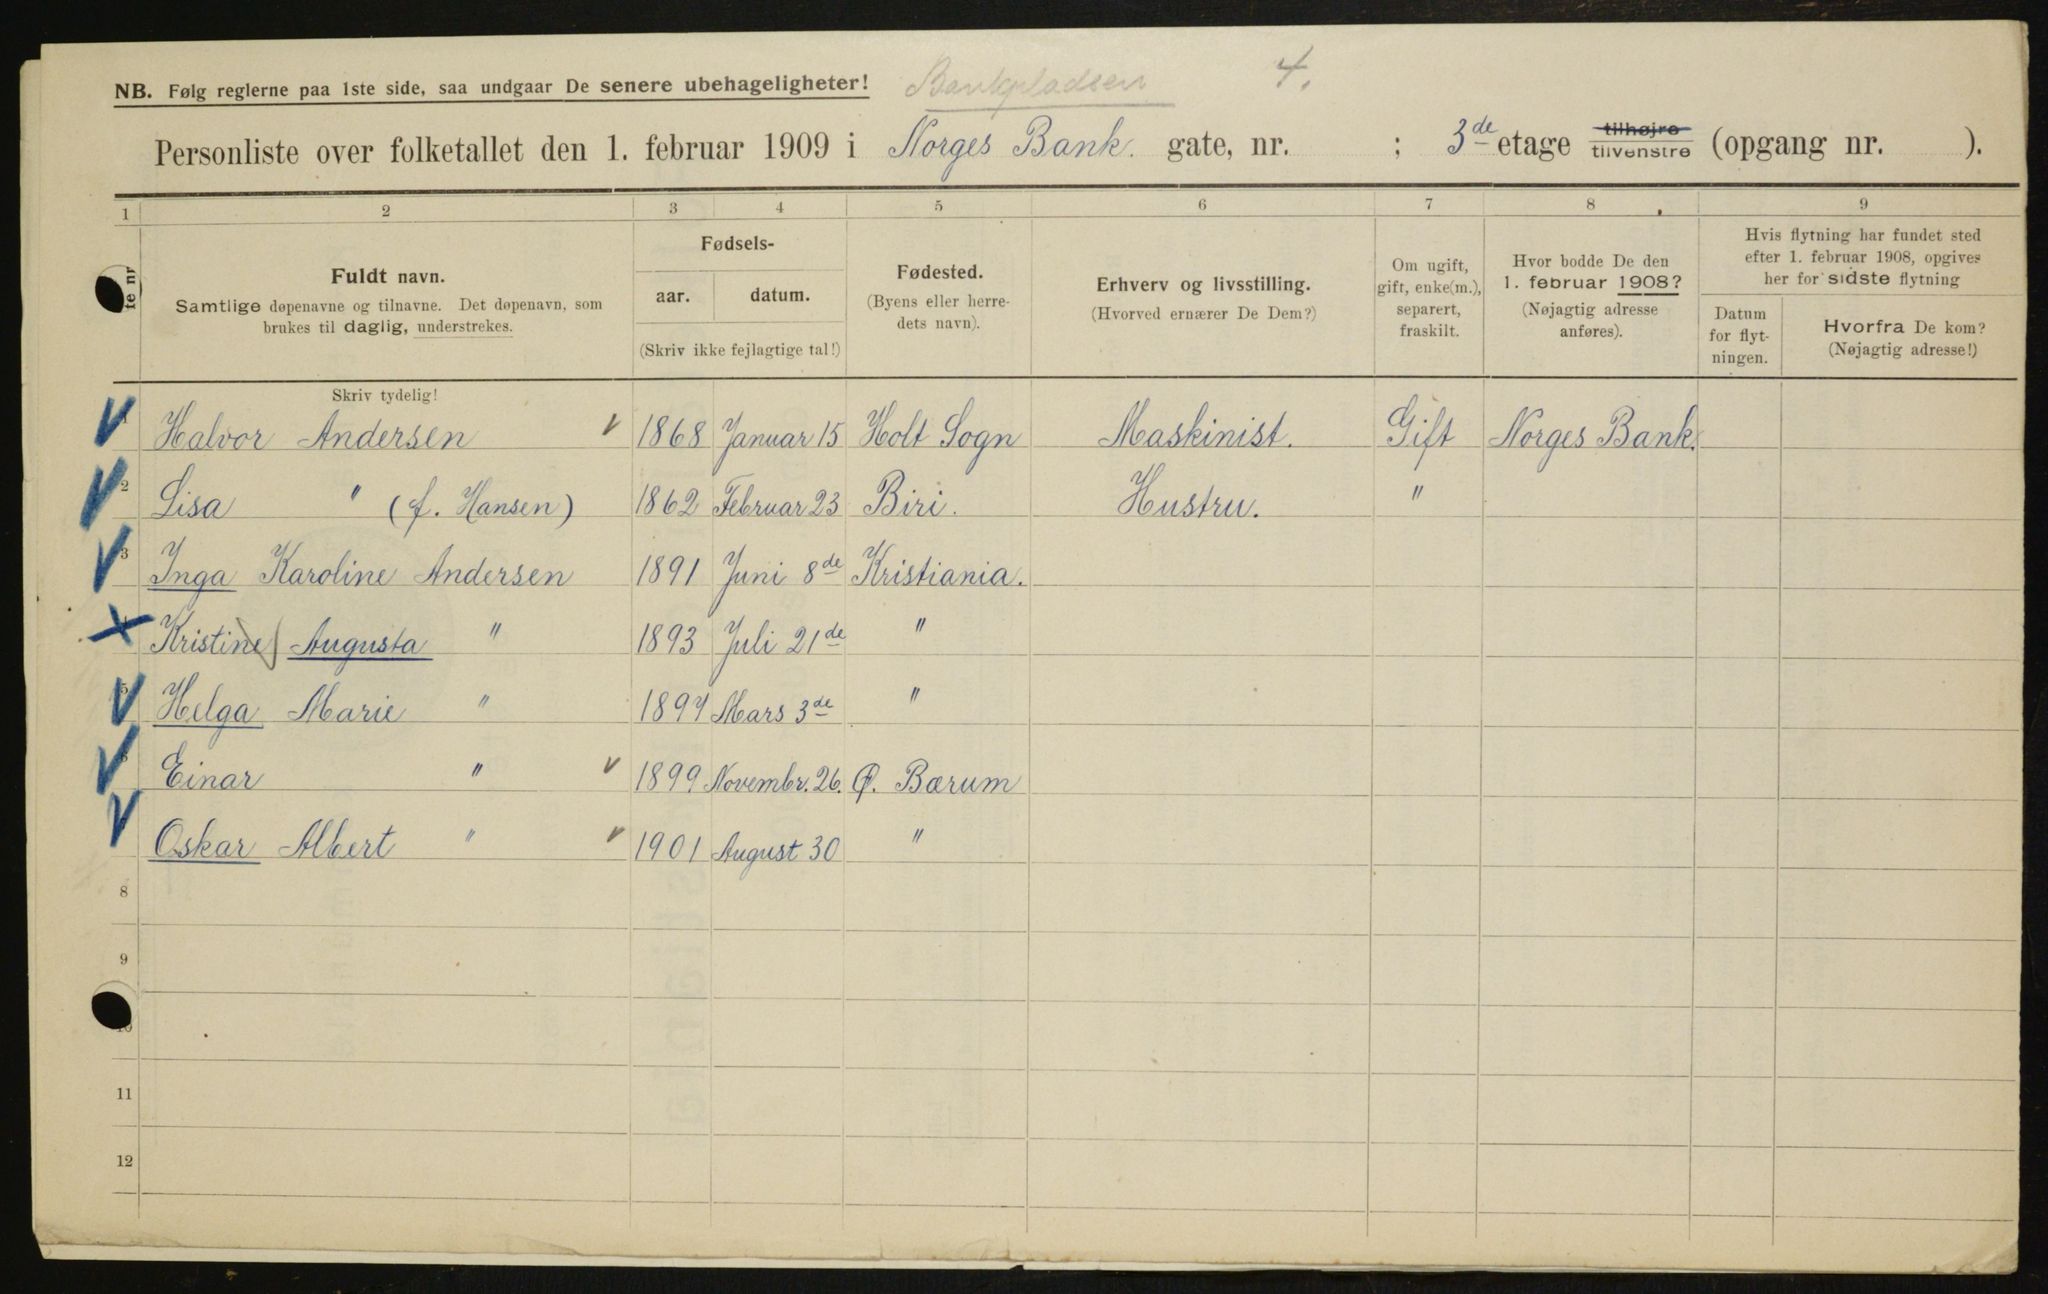 NB. Følg reglerne paa 1ste side, saa undgaar De senere ubehageligheter! Bankpladsen 4.
Personliste over folketallet den 1. februar 1909 i Norges Bank. gate, nr. ; 3de etage tilhøjre tilvenstre (opgang nr. ).
1 2 3 4 5 6 7 8 9
te nr
Fuldt navn.
Samtlige døpenavne og tilnavne. Det døpenavn, som
brukes til daglig, understrekes.
Fødsels-
aar. datum.
(Skriv ikke fejlagtige tal!)
Fødested.
(Byens eller herre-
dets navn).
Erhverv og livsstilling.
(Hvorved ernærer De Dem?)
Om ugift,
gift, enke(m.),
separert,
fraskilt.
Hvor bodde De den
1. februar 1908?
(Nøjagtig adresse
anføres).
Hvis flytning har fundet sted
efter 1. februar 1908, opgives
her for sidste flytning
Datum
for flyt-
ningen.
Hvorfra De kom?
(Nøjagtig adresse!)
Skriv tydelig!
1 Halvor Andersen 1868 Januar 15 Holt Sogn Maskinist. Gift Norges Bank.
2 Lisa " (f. Hansen) 1862 Februar 23 Biri. Hustru. "
3 Inga Karoline Andersen 1891 Juni 8de Kristiania.
4 Kristine Augusta " 1893 Juli 21de "
5 Helga Marie " 1897 Mars 3de "
6 Einar " 1899 Novembr. 26. Ø. Bærum
Oskar Albert " 1901 August 30 "
8
9
10
11
12